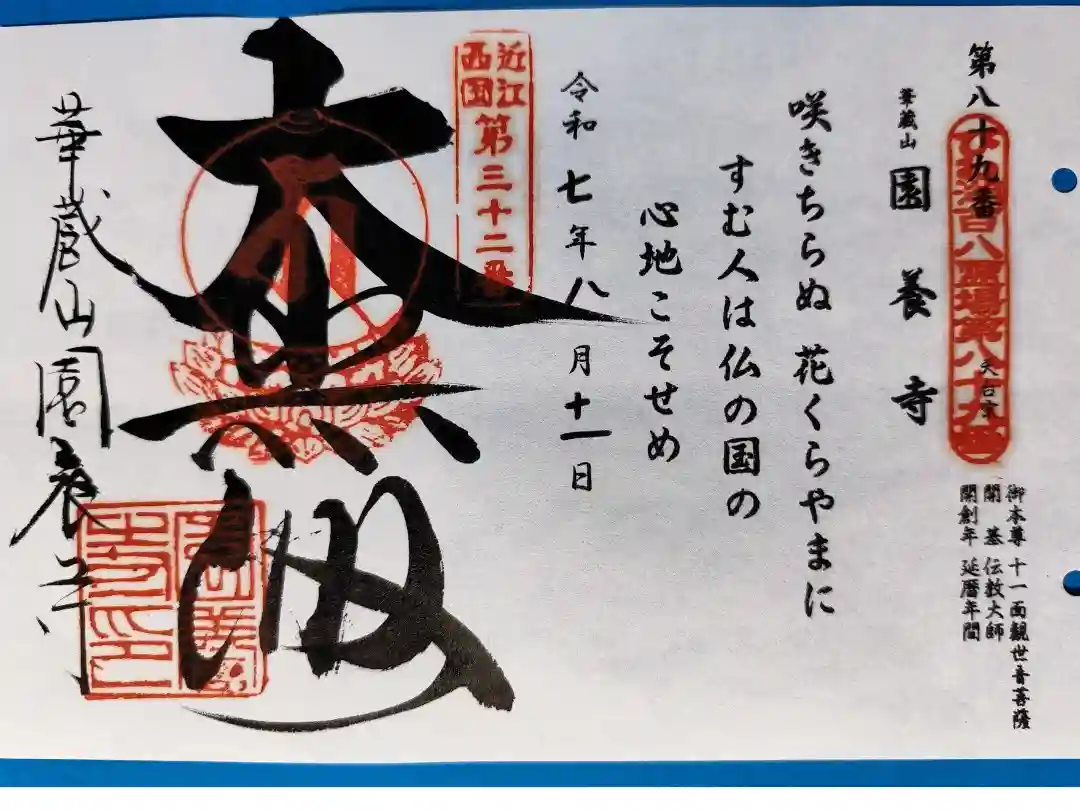 御本尊 十一面観世音菩薩
開基 伝教大師
開創年 延暦年間
第八十九番
百八霊場第八十九番
天台宗
華蔵山 園養寺
咲きちらぬ 花くらやまに
すむ人は仏の国の
心地こそせめ
令和七年八月十一日
近江
西国
第三十二番
華蔵山園養寺